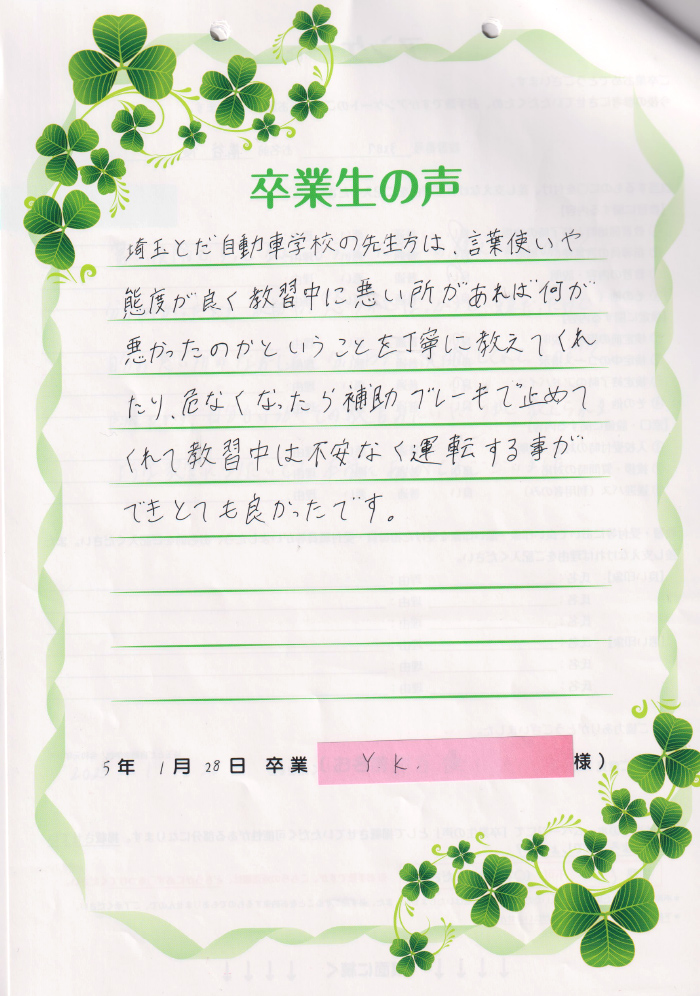 卒業生の声
埼玉とだ自動車学校の先生方は、言葉使いや
態度が良く教習中に悪い所があれば何が
悪かったのかということを丁寧に教えてくれ
たり、危なくなったら補助ブレーキで止めて
くれて教習中は不安なく運転する事が
できとても良かったです。
5年 1月 28日 卒業 Y K. 様）